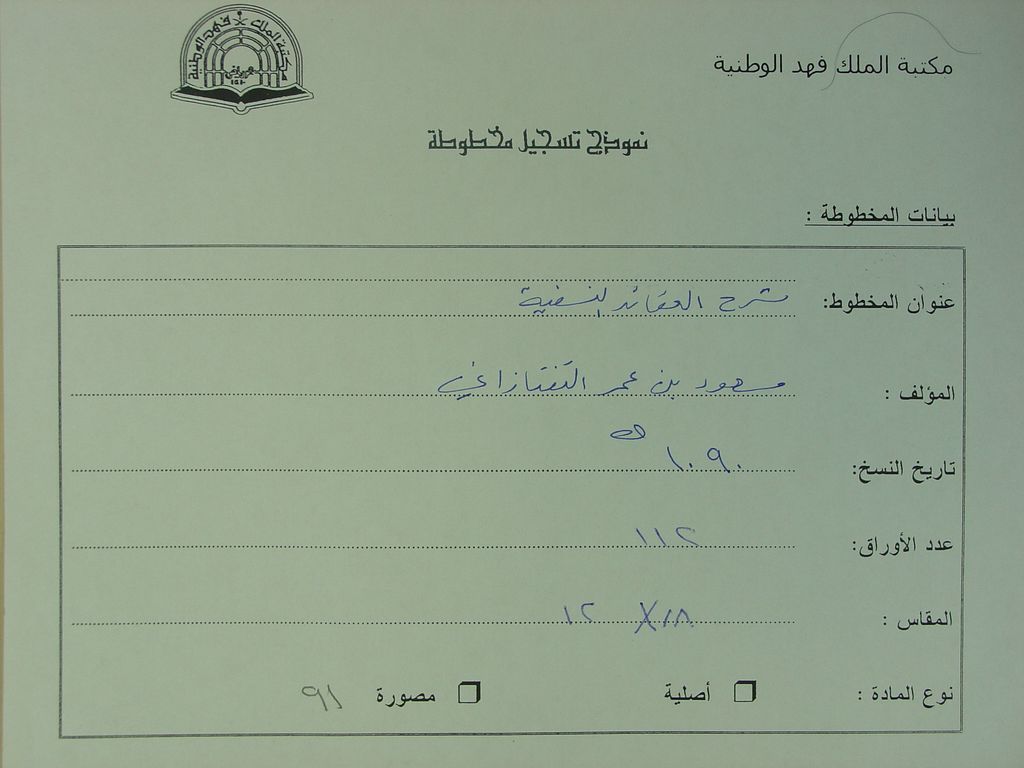 مكتبة الملك فهد الوطنية
مكتبة الملك فهد الوطنية
نموذج تسجيل مخطوطة
بيانات المخطوطة :
عنوان المخطوط: شرح العقائد النسفية
المؤلف : مسعود بن عمر التفتازاني
تاريخ النسخ: ١٠٩٠ هـ
عدد الأوراق: ١١٢
المقاس : ١٨ X ١٢
نوع المادة : أصلية مصورة ٩١